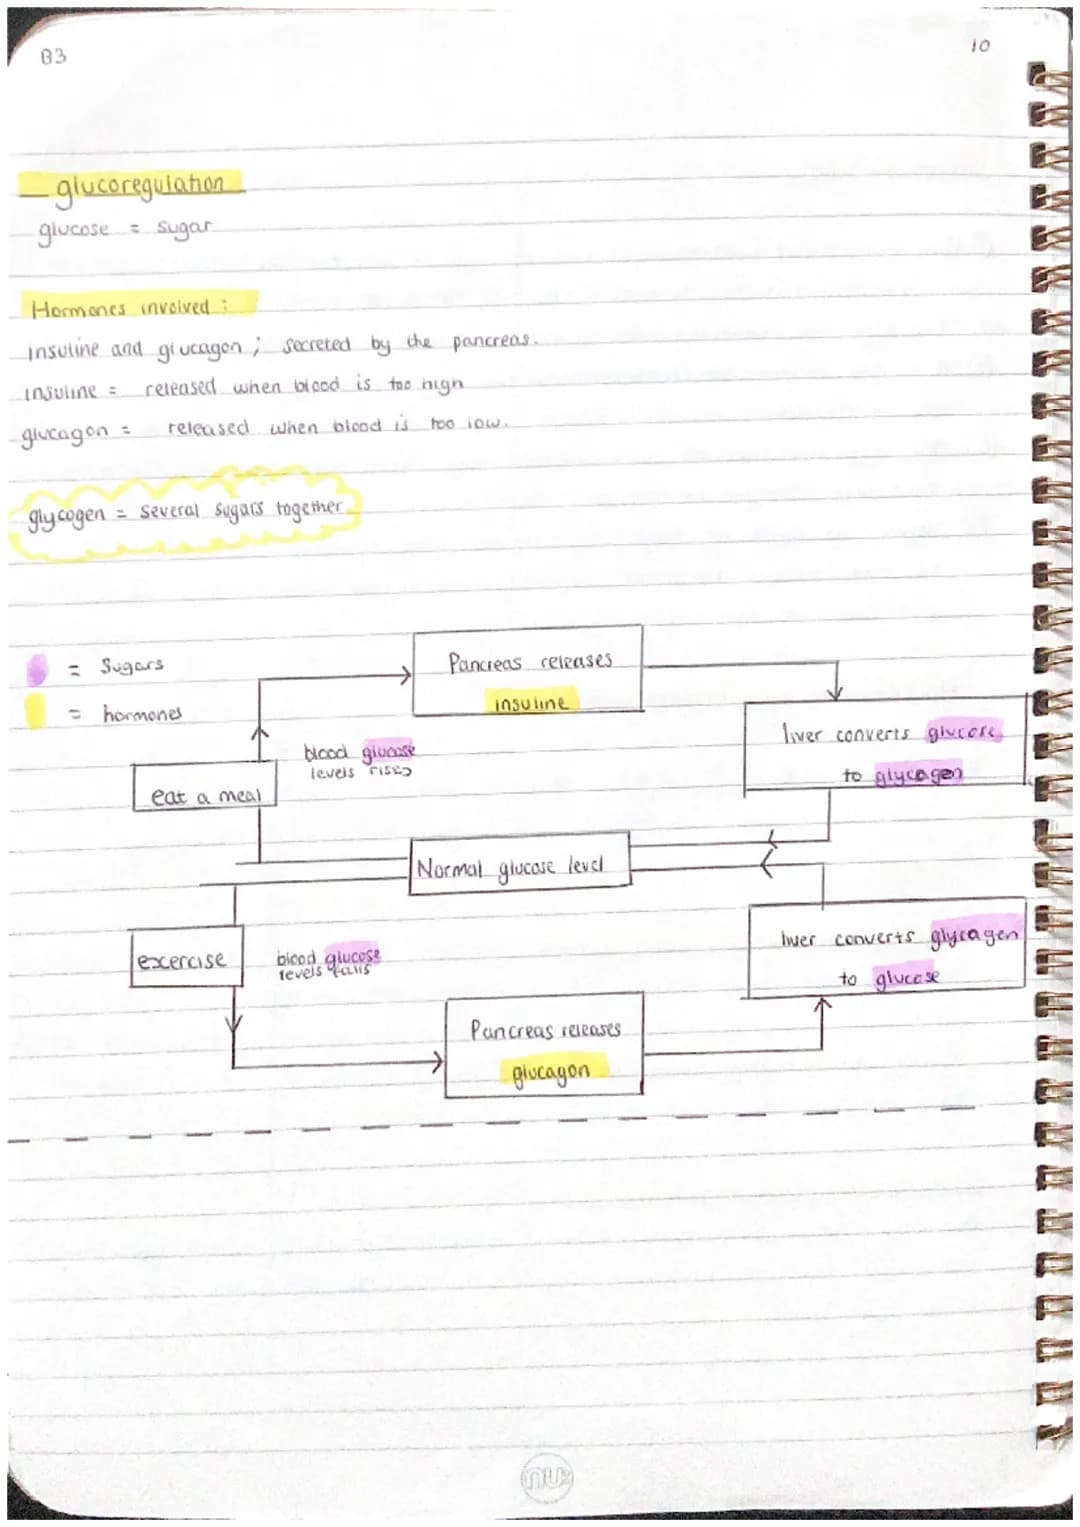 B3
10
glucoregulation
glucose = sugar
Hormones involved :
insuline and glucagon ; secreted by the pancreas.
insuline = released when blood is too high
glucagon = released when blood is too low.
glycogen = several sugars together
= Sugars
= hormones
Pancreas releases
insuline
liver converts glucose
to glycogen
blood glucose
levels rises
eat a meal
Normal glucose level
excercise
blood glucose
levels falls
liver converts glycogen
to glucose
Pancreas releases
glucagon
nu: